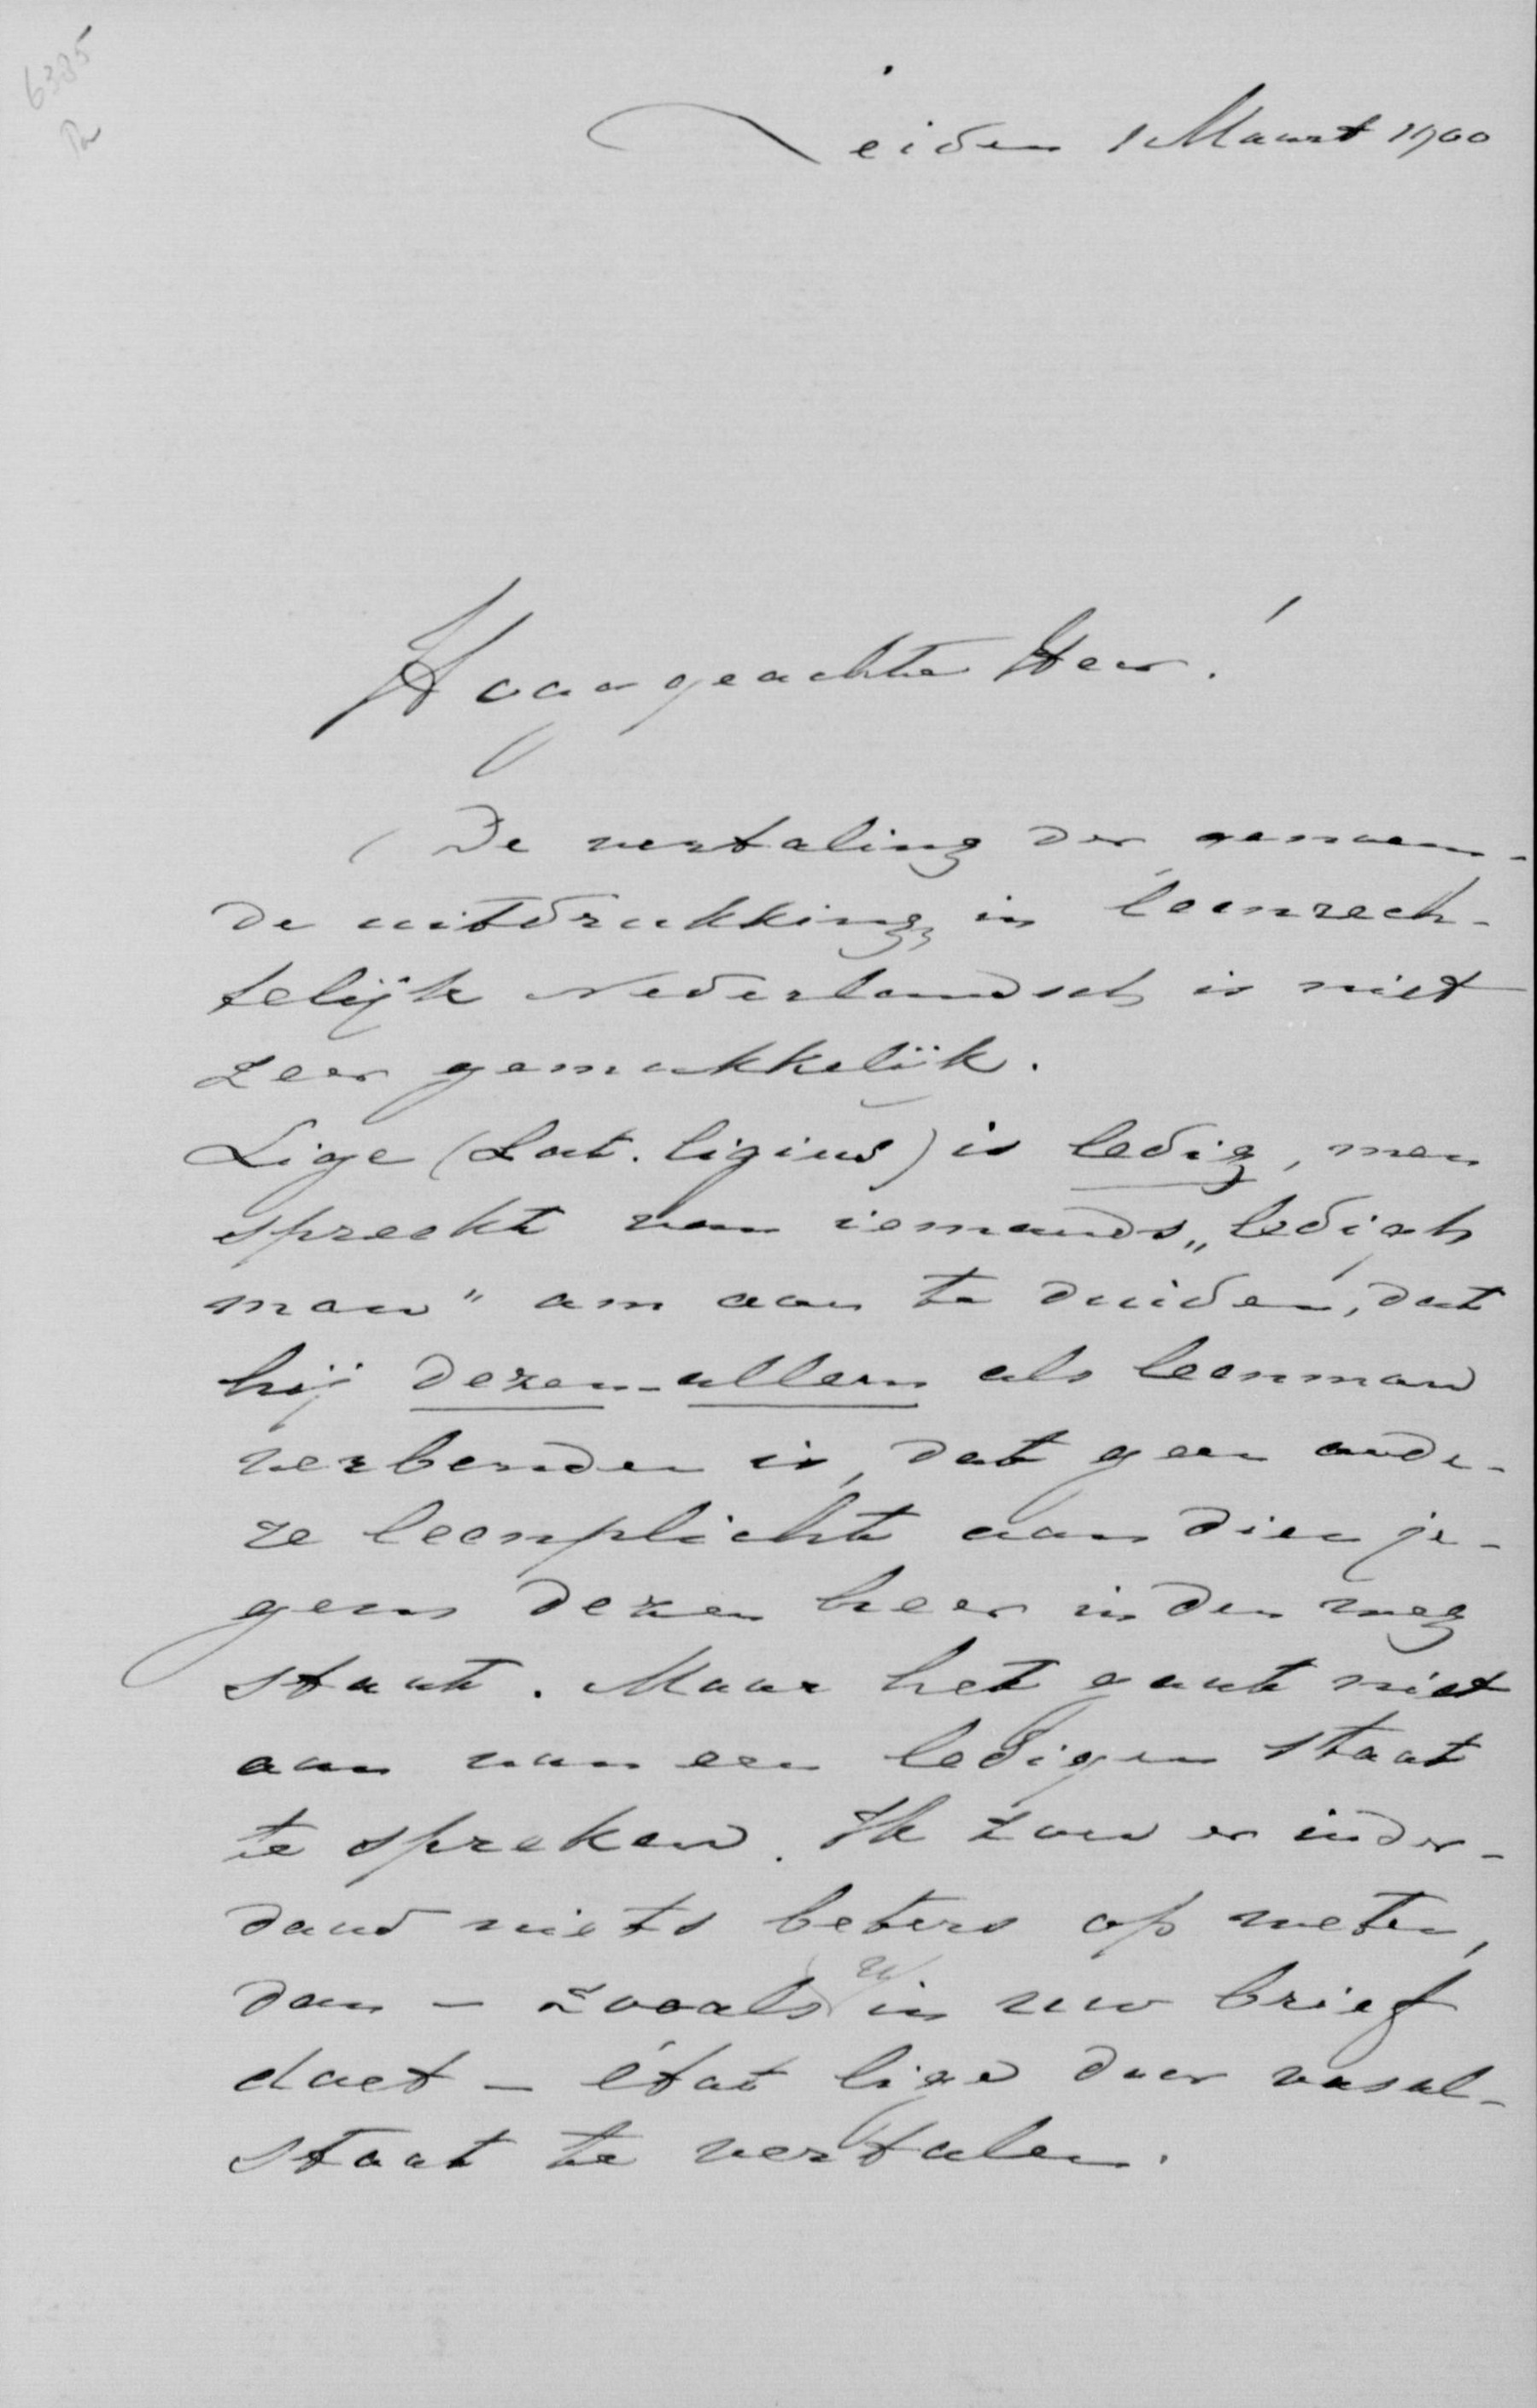 6385
Leiden 1 Maart 1900
Hooggeachte Heer!
De vertaling der genoem-
de uitdrukking in leenrech-
telijk Nederlandsch is niet
zeer gemakkelijk.
Lige (Lat. ligius) is ledig, men
spreekt van iemands „ledigh
man" om aan te duiden, dat
hij dezen alleen als leenman
verbonden is, dat geen ande-
re leenplicht aan dien je-
gens dezen heer in den weg
staat. Maar het gaat niet
aan van een ledigen staat
te spreken. Ik zou er inder-
daad niets beters op weten,
dan - zooals u in uw brief
doet - état lige door vasal-
staat te vertalen.